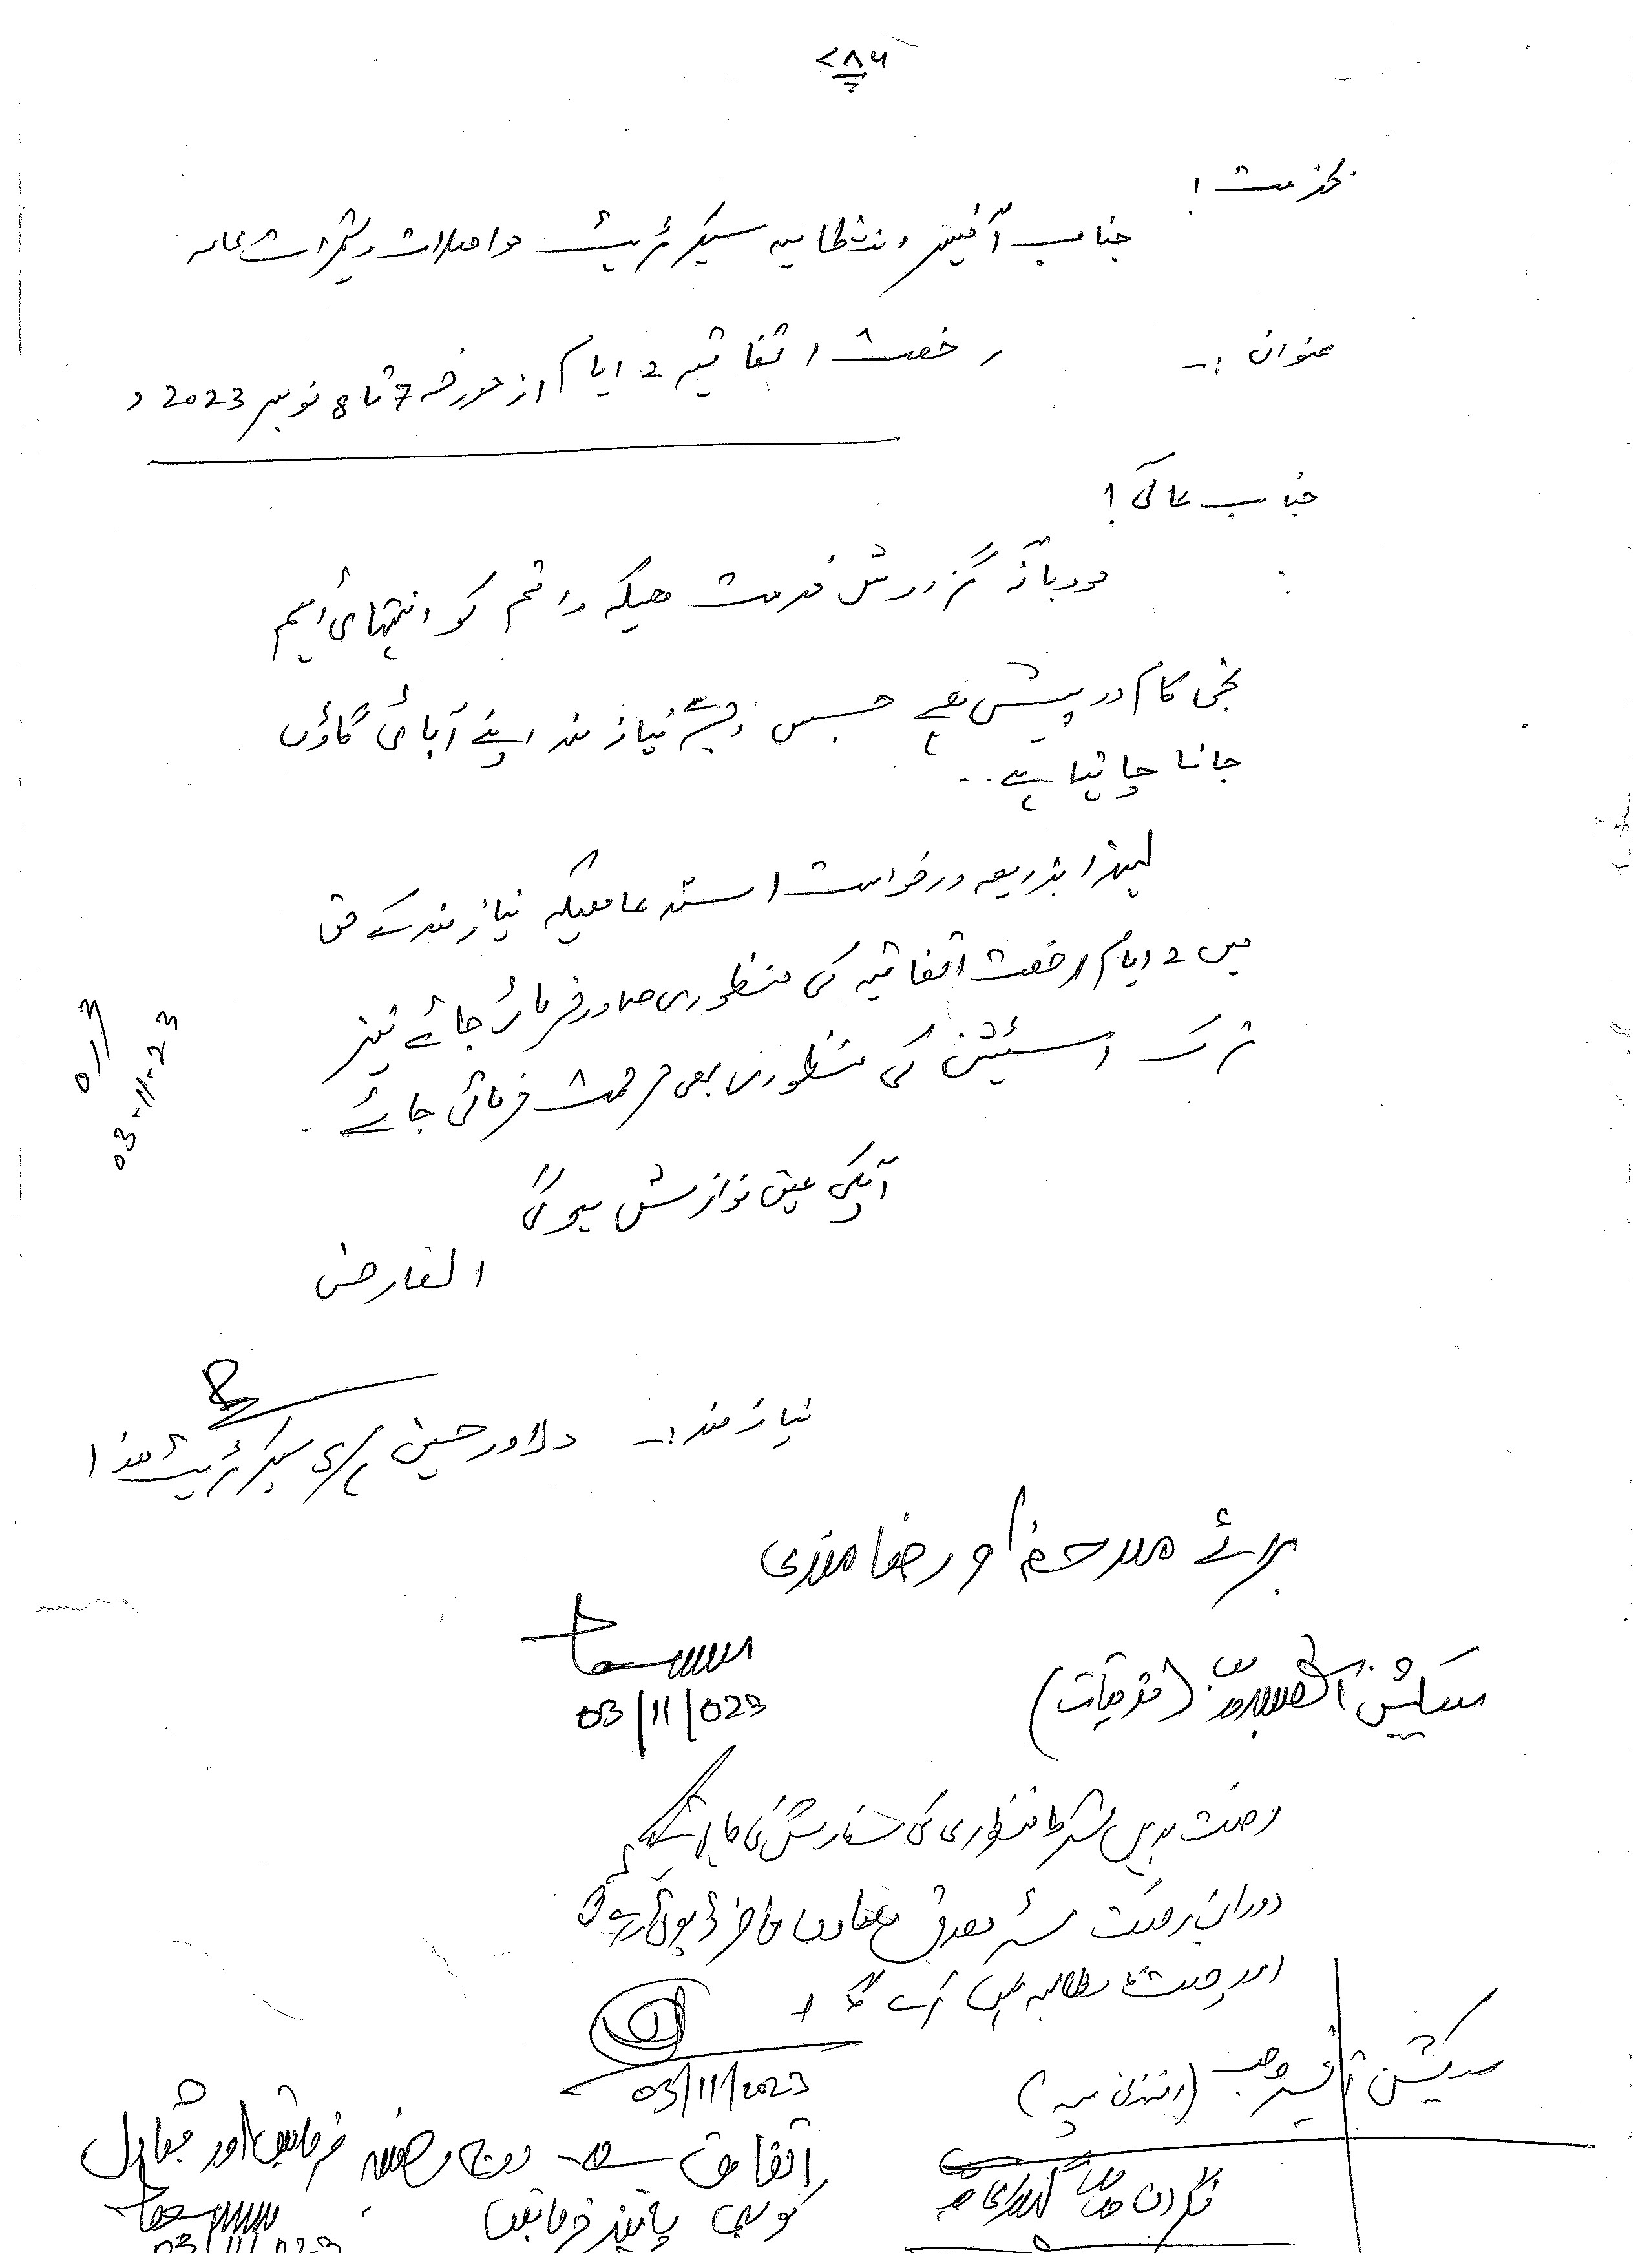 ۷۸۶
بخدمت!
جناب آفیسر انتظامیہ سیکرٹریٹ مواصلات و تعمیرات عامہ
عنوان :۔ رخصت اتفاقیہ 2 ایام از مورخہ 7 تا 8 نومبر 2023ء
جناب عالی!
مودبانہ گزارش خدمت ھیکہ راقم کو انتہائی اہم
نجی کام درپیش ہے جس وجہ سے نیازمند اپنے آبائی گاؤں
جانا چاہتا ہے۔
لہذا بذریعہ درخواست استدعا ھیکہ نیازمند کے حق
میں 2 ایام رخصت اتفاقیہ کی منظوری صادر فرمائی جائے نیز
ترک اسٹیشن کی منظوری بھی مرحمت فرمائی جائے۔
آپکی عین نوازش ہوگی
العارض
03-11-23
نیازمند :۔ دلاور حسین سیکرٹریٹ ھذا
برائے ملاحظہ و رضامندی
03/11/023
سیکشن آفیسر صاحب (ترقیات)
رخصت بدیں شرط منظوری کی سفارش کی جاتی ہے کہ
دوران رخصت
اور رخصت کا مطالبہ نہیں کرے گا۔
03/11/2023
سیکشن آفیسر صاحب (انتظامیہ)
اتفاق ہے۔ فرمائیں اور متبادل
کو بھی پابند فرمائیں
03/11/023